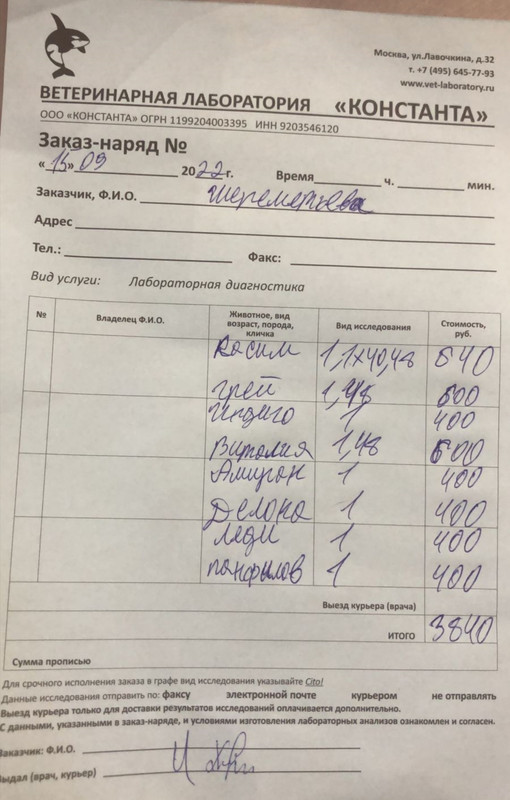 Москва, ул.Лавочкина, д.32
т. +7 (495) 645-77-93
www.vet-laboratory.ru
ВЕТЕРИНАРНАЯ ЛАБОРАТОРИЯ «КОНСТАНТА»
ООО «КОНСТАНТА» ОГРН 1199204003395 ИНН 9203546120
Заказ-наряд №
« 15» 09 2022г. Время ч. мин.
Заказчик, Ф.И.О. Шереметьева
Адрес
Тел.: Факс:
Вид услуги: Лабораторная диагностика
№ Владелец Ф.И.О. Животное, вид возраст, порода, кличка Вид исследования Стоимость, руб.
Касим 640
Грей 600
Индиго 1 400
Виталия 1,48 600
1 400
Делона 1 400
Леди 1 400
Панфилов 1 400
Выезд курьера (врача)
ИТОГО 3840
Сумма прописью
Для срочного исполнения заказа в графе вид исследования указывайте Cito!
Данные исследования отправить по: факсу электронной почте курьером не отправлять
Выезд курьера только для доставки результатов исследований оплачивается дополнительно.
С данными, указанными в заказ-наряде, и условиями изготовления лабораторных анализов ознакомлен и согласен.
Заказчик: Ф.И.О.
Выдал (врач, курьер)